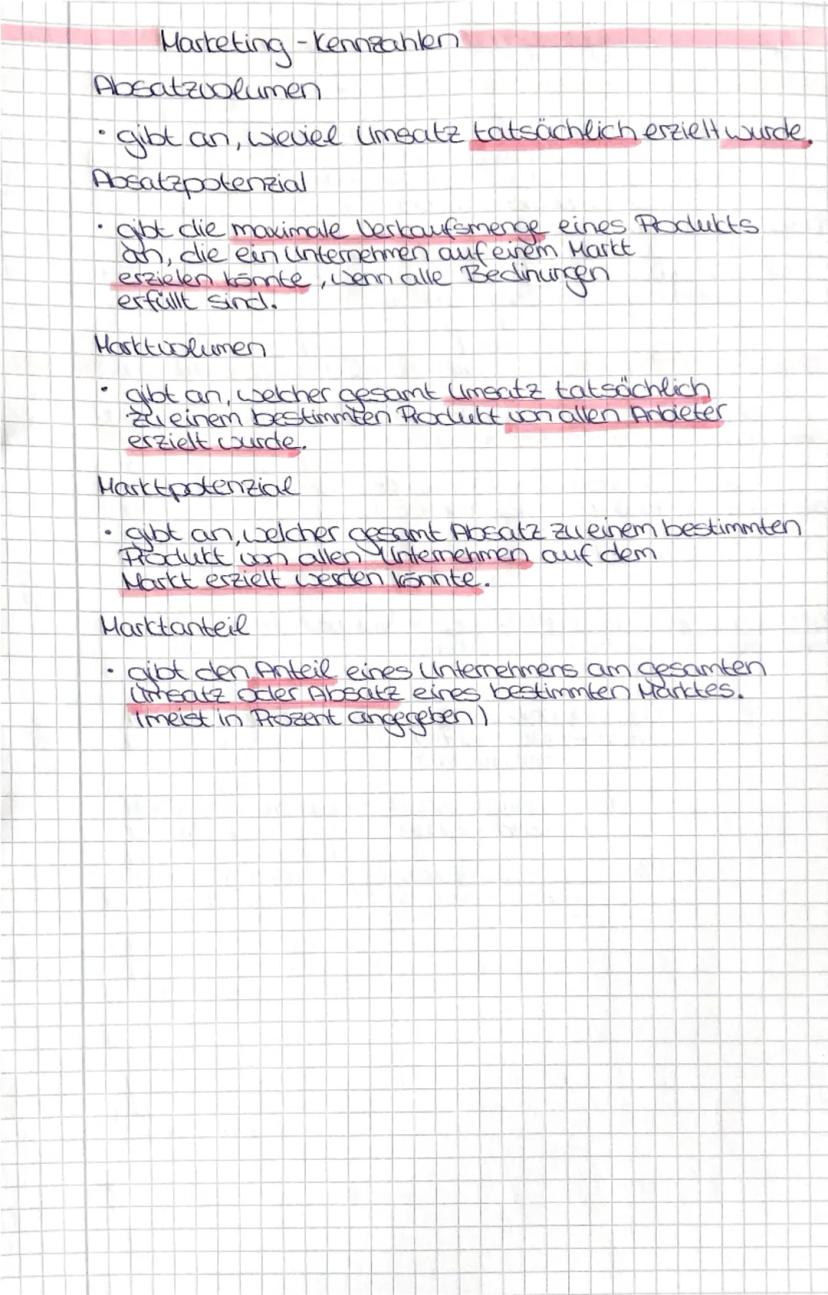 Marketing - Kennzahlen
Absatzvolumen
• gibt an, wieviel Umsatz tatsächlich erzielt wurde.
Absatzpotenzial
• gibt die maximale Verkaufsmenge eines Produkts
an, die ein Unternehmen auf einem Markt
erzielen könnte, wenn alle Bedinungen
erfüllt sind.
Marktvolumen
• gibt an, welcher gesamt Umsatz tatsächlich
zu einem bestimmten Produkt von allen Anbieter
erzielt wurde.
Marktpotenzial
• gibt an, welcher gesamt Absatz zu einem bestimmten
Produkt von allen Unternehmen auf dem
Markt erzielt werden könnte.
Marktanteil
• gibt den Anteil eines Unternehmens am gesamten
Umsatz oder Absatz eines bestimmten Marktes.
(meist in Prozent angegeben)